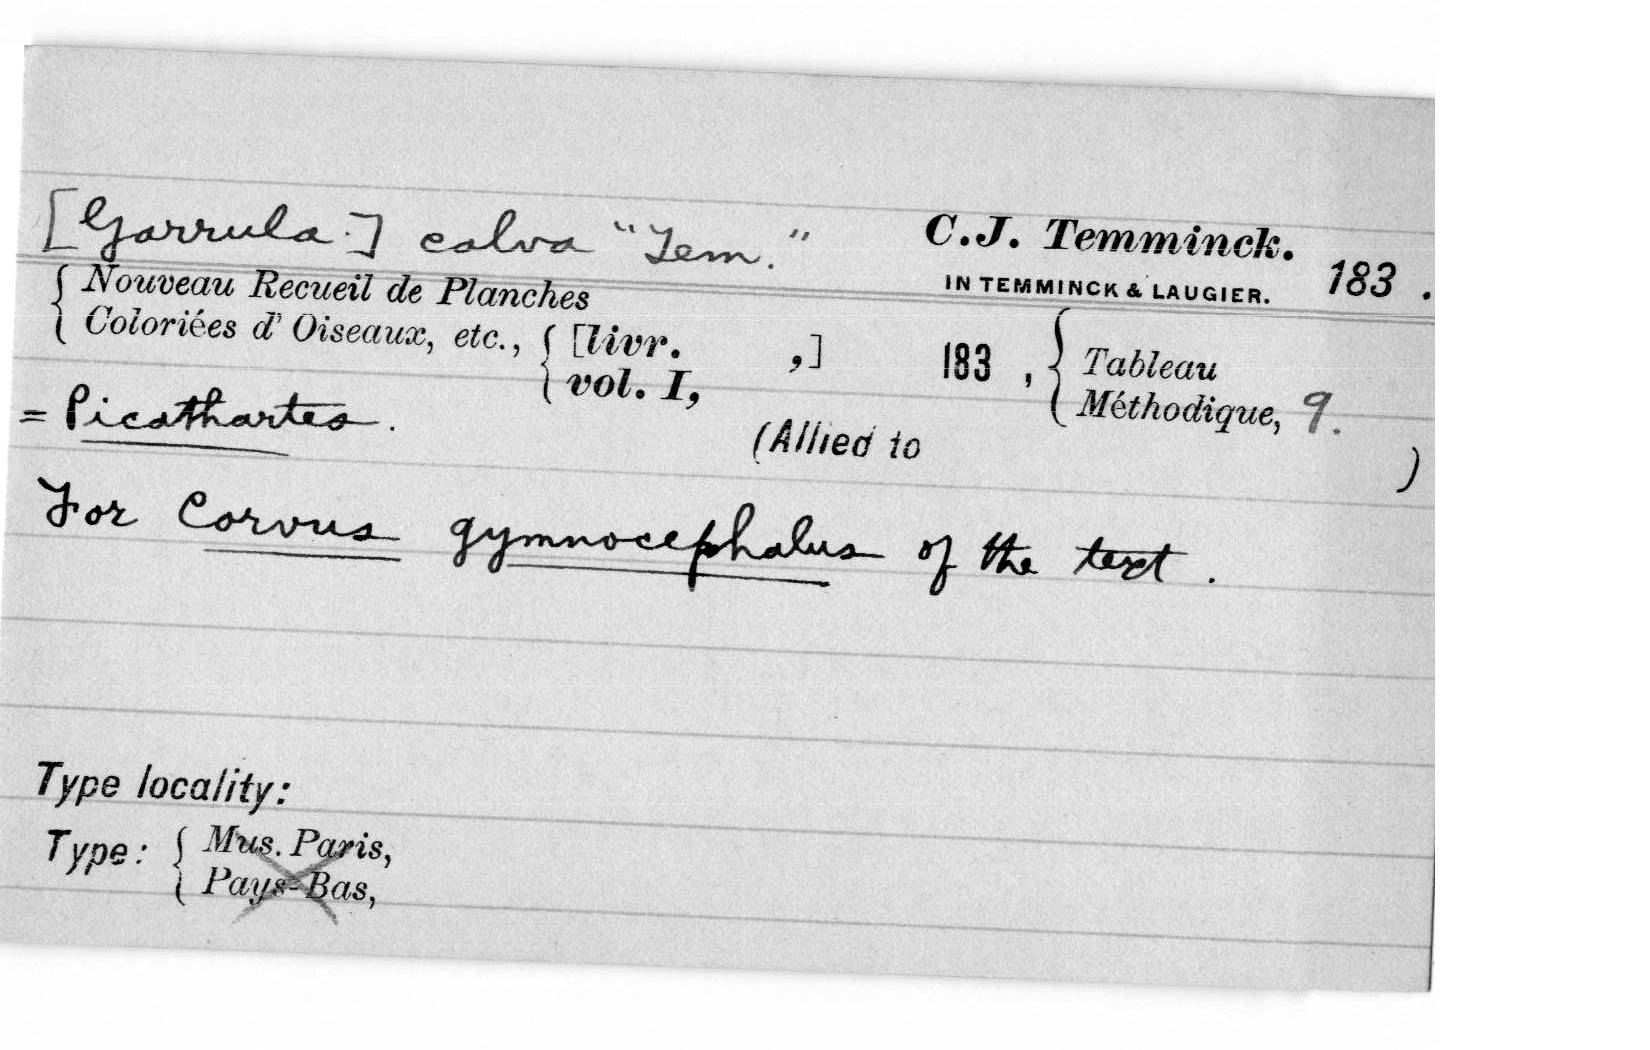 [Garrula.] calva "Tem." C.J. Temminck.
IN TEMMINCK & LAUGIER. 183 .
{ Nouveau Recueil de Planches
Coloriées d' Oiseaux, etc., { [livr. ,] 183 , { Tableau
vol. I, Méthodique, 9.
= Picathartes. (Allied to )
For Corvus gymnocephalus of the text.
Type locality:
Type: { Mus. Paris,
Pays-Bas,